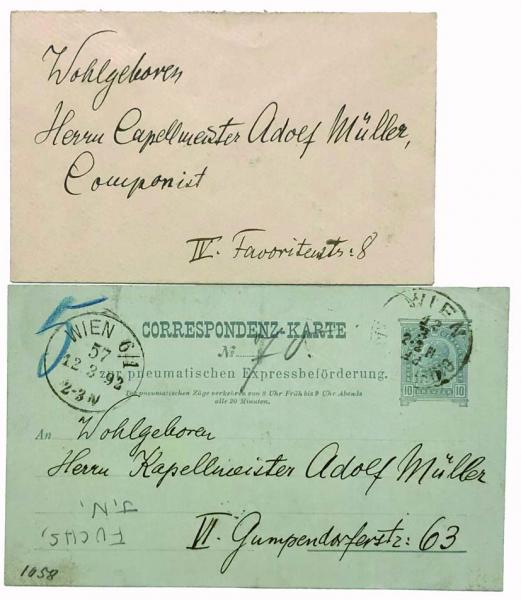 Wohlgeboren
Herrn Capellmeister Adolf Müller,
Componist
IV. Favoritenstr: 8
5
WIEN 6/1
57
12 3 92
2-3N
WIEN
CORRESPONDENZ-KARTE
№ 70.
zur pneumatischen Expressbeförderung.
Die pneumatischen Züge verkehren von 8 Uhr Früh bis 9 Uhr Abends
alle 20 Minuten.
10 10
An Wohlgeboren
Herrn Kapellmeister Adolf Müller
VI. Gumpendorferstr: 63
FUCHS,
J.N.
1058